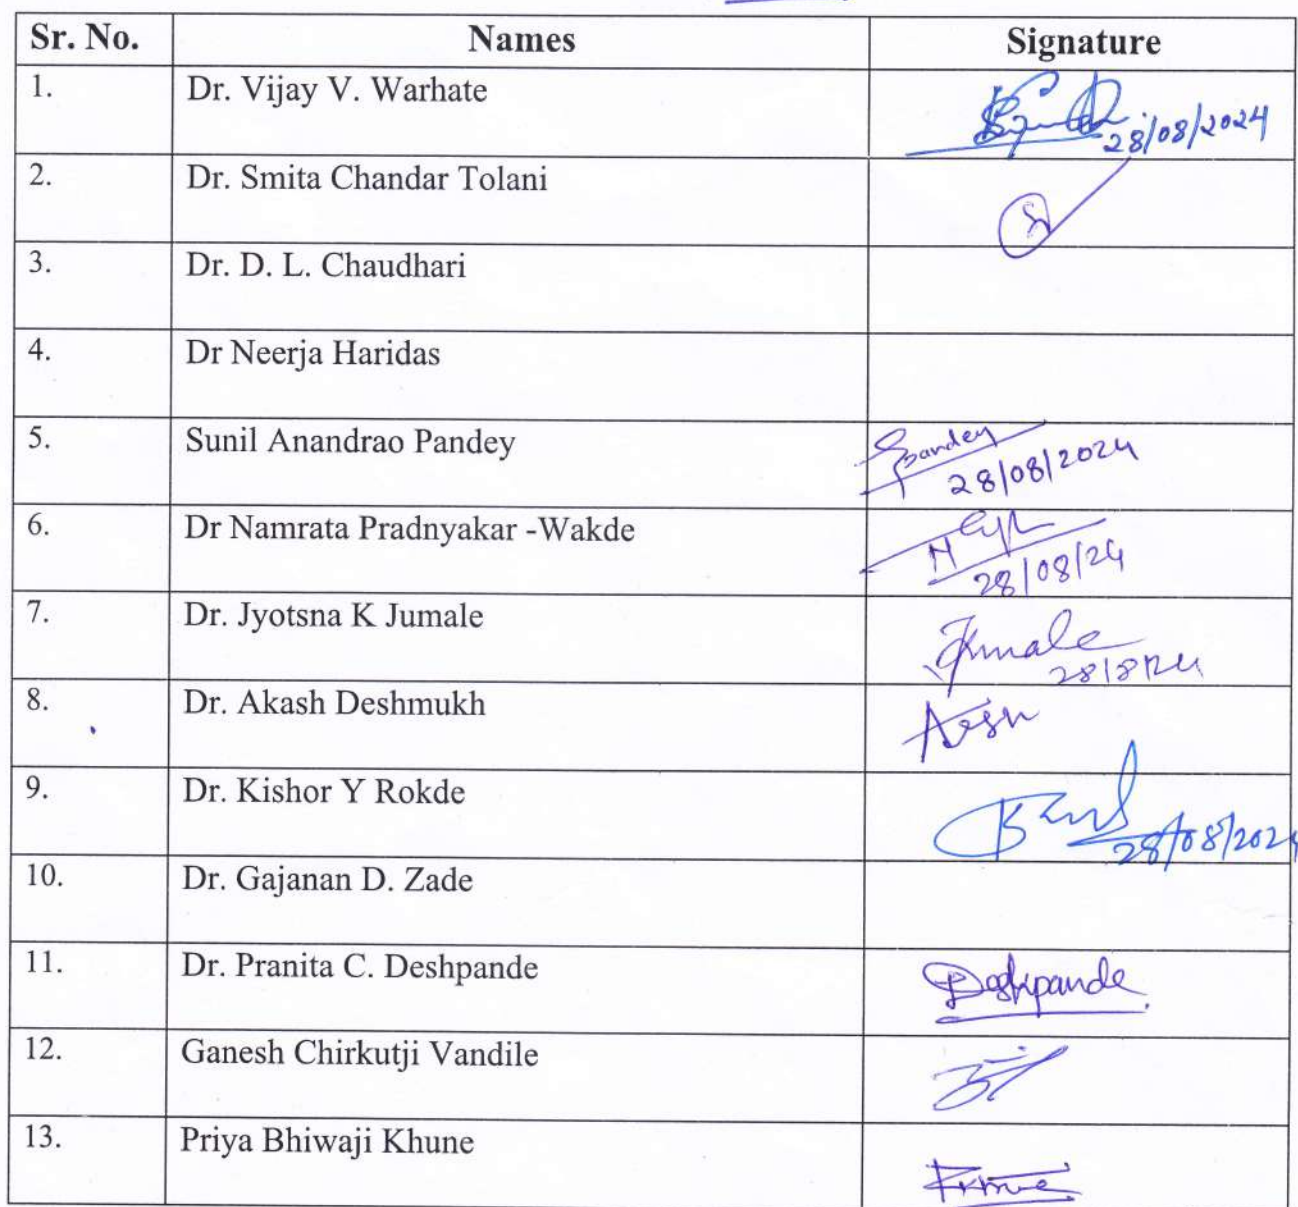 Sr. No. Names Signature
1. Dr. Vijay V. Warhate 28/08/2024
2. Dr. Smita Chandar Tolani
3. Dr. D. L. Chaudhari
4. Dr Neerja Haridas
5. Sunil Anandrao Pandey Pandey
28/08/2024
6. Dr Namrata Pradnyakar -Wakde
28/08/24
7. Dr. Jyotsna K Jumale Jumale
28/8/24
8. Dr. Akash Deshmukh
9. Dr. Kishor Y Rokde
28/08/2024
10. Dr. Gajanan D. Zade
11. Dr. Pranita C. Deshpande Deshpande
12. Ganesh Chirkutji Vandile
13. Priya Bhiwaji Khune